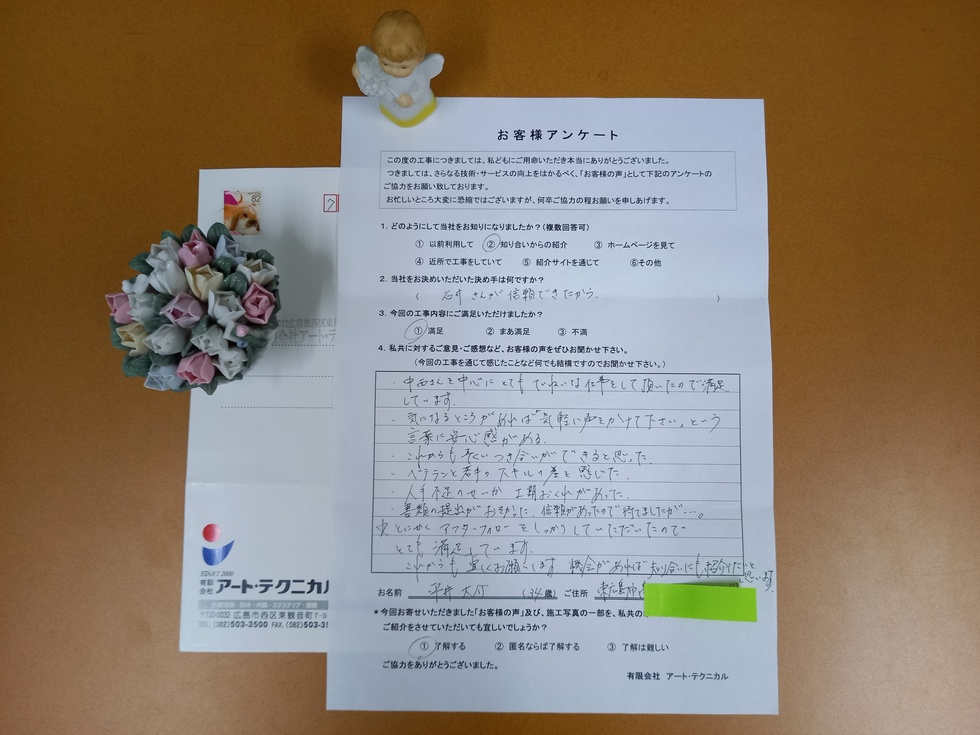 お客様アンケート
この度の工事につきましては、私どもにご用命いただき本当にありがとうございました。
つきましては、さらなる技術・サービスの向上をはかるべく、「お客様の声」として下記のアンケートの
ご協力をお願い致しております。
お忙しいところ大変に恐縮ではございますが、何卒ご協力の程お願いを申しあげます。
1. どのようにして当社をお知りになりましたか？(複数回答可)
① 以前利用して ② 知り合いからの紹介 ③ ホームページを見て
④ 近所で工事をしていて ⑤ 紹介サイトを通じて ⑥その他
2. 当社をお決めいただいた決め手は何ですか？
( 石井さんが信頼できたから。 )
3. 今回の工事内容にご満足いただけましたか？
① 満足 ② まあ満足 ③ 不満
4. 私共に対するご意見・ご感想など、お客様の声をぜひお聞かせ下さい。
(今回の工事を通じて感じたことなど何でも結構ですのでお聞かせ下さい。)
・中西さんを中心にとてもていねいな仕事をして頂いたので満足
しています。
・気になるところがあれば「気軽に声をかけて下さい」という
言葉に安心感がある。
・これからも長いつき合いができると思った。
・ベテランと若手のスキルの差を感じた。
・人手不足のせいか工期おくれがあった。
・書類の提出がおそかった。信頼があったので待てましたが…。
☆とにかくアフターフォローをしっかりしていただいたので
とても満足しています。
これからも宜しくお願いします。機会があれば知り合いにも紹介したいと
思います。
お名前 平井 大介 (34歳) ご住所 東広島市
＊今回お寄せいただきました「お客様の声」及び、施工写真の一部を、私共の
ご紹介をさせていただいても宜しいでしょうか？
① 了解する ② 匿名ならば了解する ③ 了解は難しい
ご協力をありがとうございました。
有限会社 アート・テクニカル
82
START 2000
有限会社 アート・テクニカル
〒733-0032 広島市西区東観音町7-9
TEL.(082)503-3500 FAX.(082)503-3